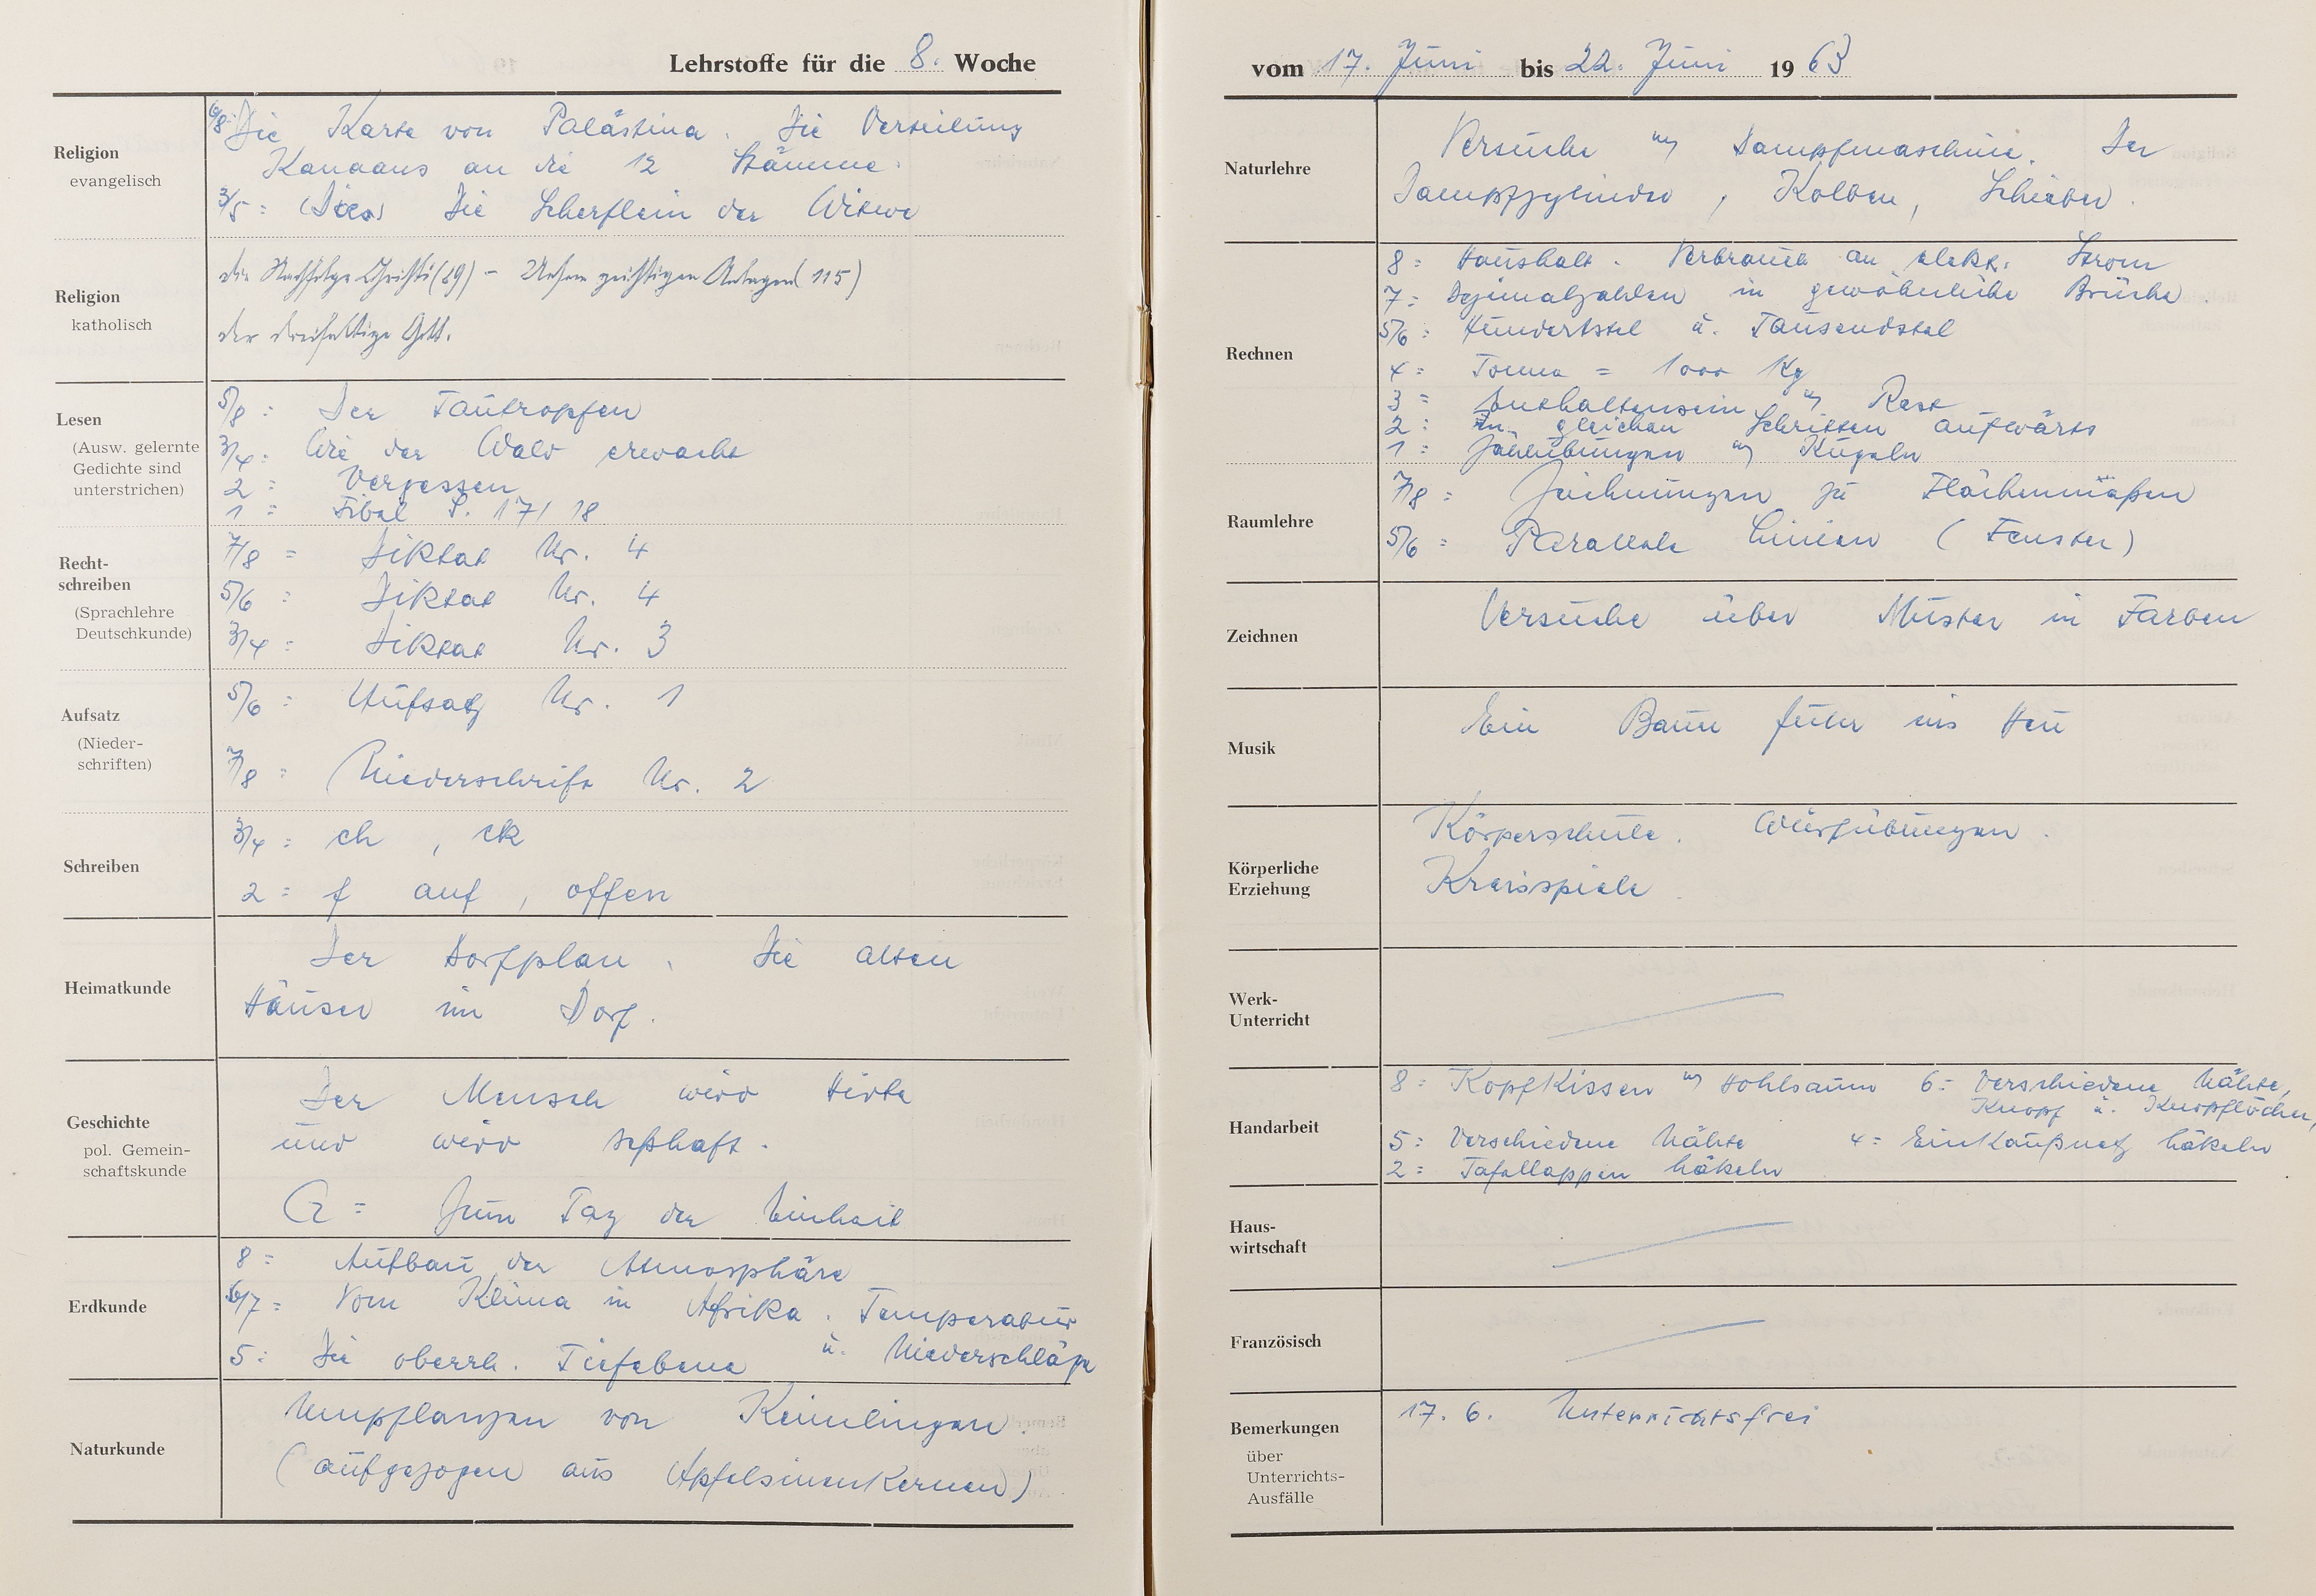 Lehrstoffe für die 8. Woche
Religion
evangelisch
6/8: Die Karte von Palästina. Die Verteilung
Kanaans an die 12 Stämme.
3/5: Die Scherflein der Witwe
Religion
katholisch
die Nachfolge Christi (29) - Unsere geistigen Anlagen (115)
der dreifaltige Gott.
Lesen
(Ausw. gelernte
Gedichte sind
unterstrichen)
5/8: Der Tautropfen
3/4: Wie der Wald erwacht
2: Vergessen
1: Fibel S. 17/18
Recht-
schreiben
(Sprachlehre
Deutschkunde)
7/8 = Diktat Nr. 4
5/6: Diktat Nr. 4
3/4: Diktat Nr. 3
Aufsatz
(Nieder-
schriften)
5/6: Aufsatz Nr. 1
7/8: Niederschrift Nr. 2
Schreiben
3/4: ch, ck
2: f auf, offen
Heimatkunde
Der Dorfplan. Die alten
Häuser im Dorf.
Geschichte
pol. Gemein-
schaftskunde
Der Mensch wird Hirte
und wird seßhaft.
G = Zum Tag der Einheit
Erdkunde
8 = Aufbau der Atmosphäre
6/7 = Vom Klima in Afrika. Temperatur
u. Niederschläge
5: Die oberrh. Tiefebene
Naturkunde
Umpflanzen von Keimlingen
(aufgezogen aus Apfelsinenkernen)
vom 17. Juni bis 22. Juni 1963
Naturlehre
Versuche m Dampfmaschine. Der
Dampfzylinder, Kolben, Schieber.
Rechnen
8 = Haushalt. Verbrauch an elektr. Strom
7 = Dezimalzahlen in gewöhnliche Brüche.
5/6: Hundertstel u. Tausendstel
4 = Tonne = 1000 kg
3 = Enthaltensein m Rest
2: In gleichen Schritten aufwärts
1 = Zählübungen m Kugeln
Raumlehre
7/8 = Zeichnungen zu Flächenmaßen
5/6 = Parallele Linien (Fenster)
Zeichnen
Versuche über Muster in Farben
Musik
Ein Bauer fuhr ins Heu
Körperliche
Erziehung
Körperschule. Wurfübungen.
Kreisspiele
Werk-
Unterricht
Handarbeit
8 = Kopfkissen m Hohlsaum 6 = Verschiedene Nähte,
Knopf u. Knopflöcher,
5: Verschiedene Nähte 4 = Einkaufsnetz häkeln
2 = Tafellappen häkeln
Haus-
wirtschaft
Französisch
Bemerkungen
über
Unterrichts-
Ausfälle
17. 6. Unterrichtsfrei